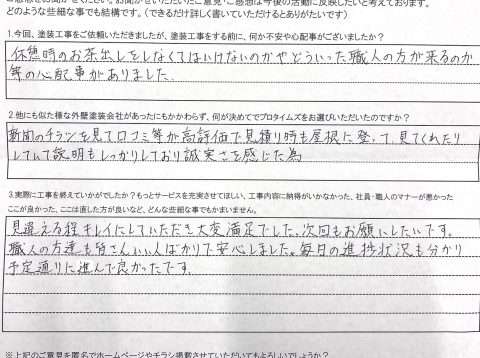 ご感想をお聞かせください。お聞かせいただいたご意見・ご感想は今後の活動に反映したいと考えております。
どのような些細な事でも結構です。（できるだけ詳しく書いていただけるとありがたいです）
1.今回、塗装工事をご依頼いただきましたが、塗装工事をする前に、何か不安や心配事がございましたか？
休憩時のお茶出しをしなくてはいけないのかやどういった職人の方が来るのか
等の心配事がありました。
2.他にも似た様な外壁塗装会社があったにもかかわらず、何が決めてでプロタイムズをお選びいただいたのですか？
新聞のチラシを見て口コミ等が高評価で見積り時も屋根に登って見てくれたり
していて説明もしっかりしており誠実さを感じた為
3.実際に工事を終えていかがでしたか？もっとサービスを充実させてほしい、工事内容に納得がいかなかった、社員・職人のマナーが悪かった
ここが良かった、ここは直した方が良いなど、どんな些細な事でもかまいません。
見違える程キレイにしていただき大変満足でした。次回もお願いしたいです。
職人の方達も皆さんいい人ばかりで安心しました。毎日の進捗状況も分かり
予定通りに進んで良かったです。
※上記のご意見を匿名でホームページやチラシ掲載させていただいてもよろしいでしょうか？